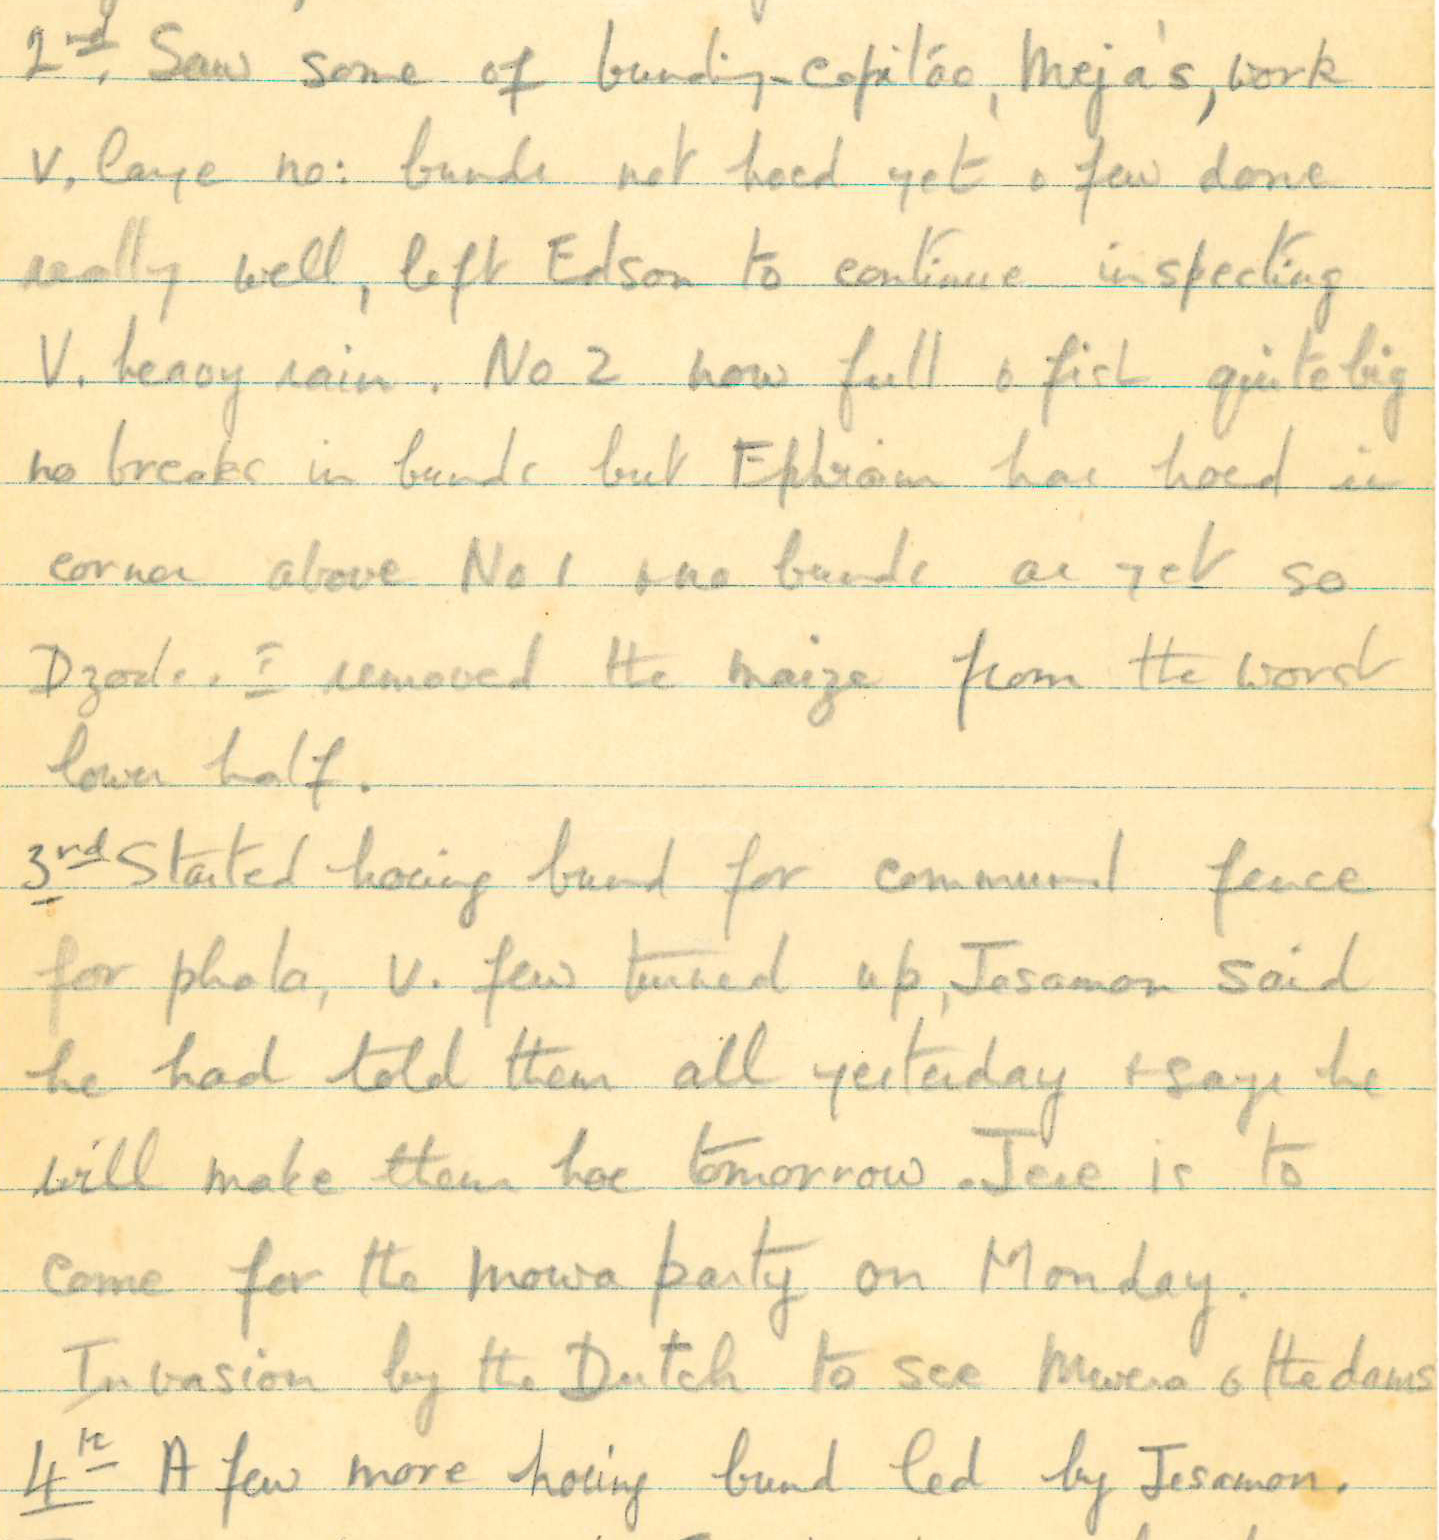 2nd. Saw some of bunding-capitão, Meja's, work
v. large no: bunds not hoed yet & few done
really well, left Edson to continue inspecting
V. heavy rain. No 2 now full & fish quite big
no breaks in bunds but Ephraim has hoed in
corner above No 1 & no bunds as yet so
Dzode. & I removed the maize from the worst
lower half.
3rd Started hoeing bund for communal fence
for phala, v. few turned up, Jesamon said
he had told them all yesterday & says he
will make them hoe tomorrow. Jere is to
come for the mowa party on Monday.
Invasion by the Dutch to see Mwera & the dams
4th A few more hoeing bund led by Jesamon.